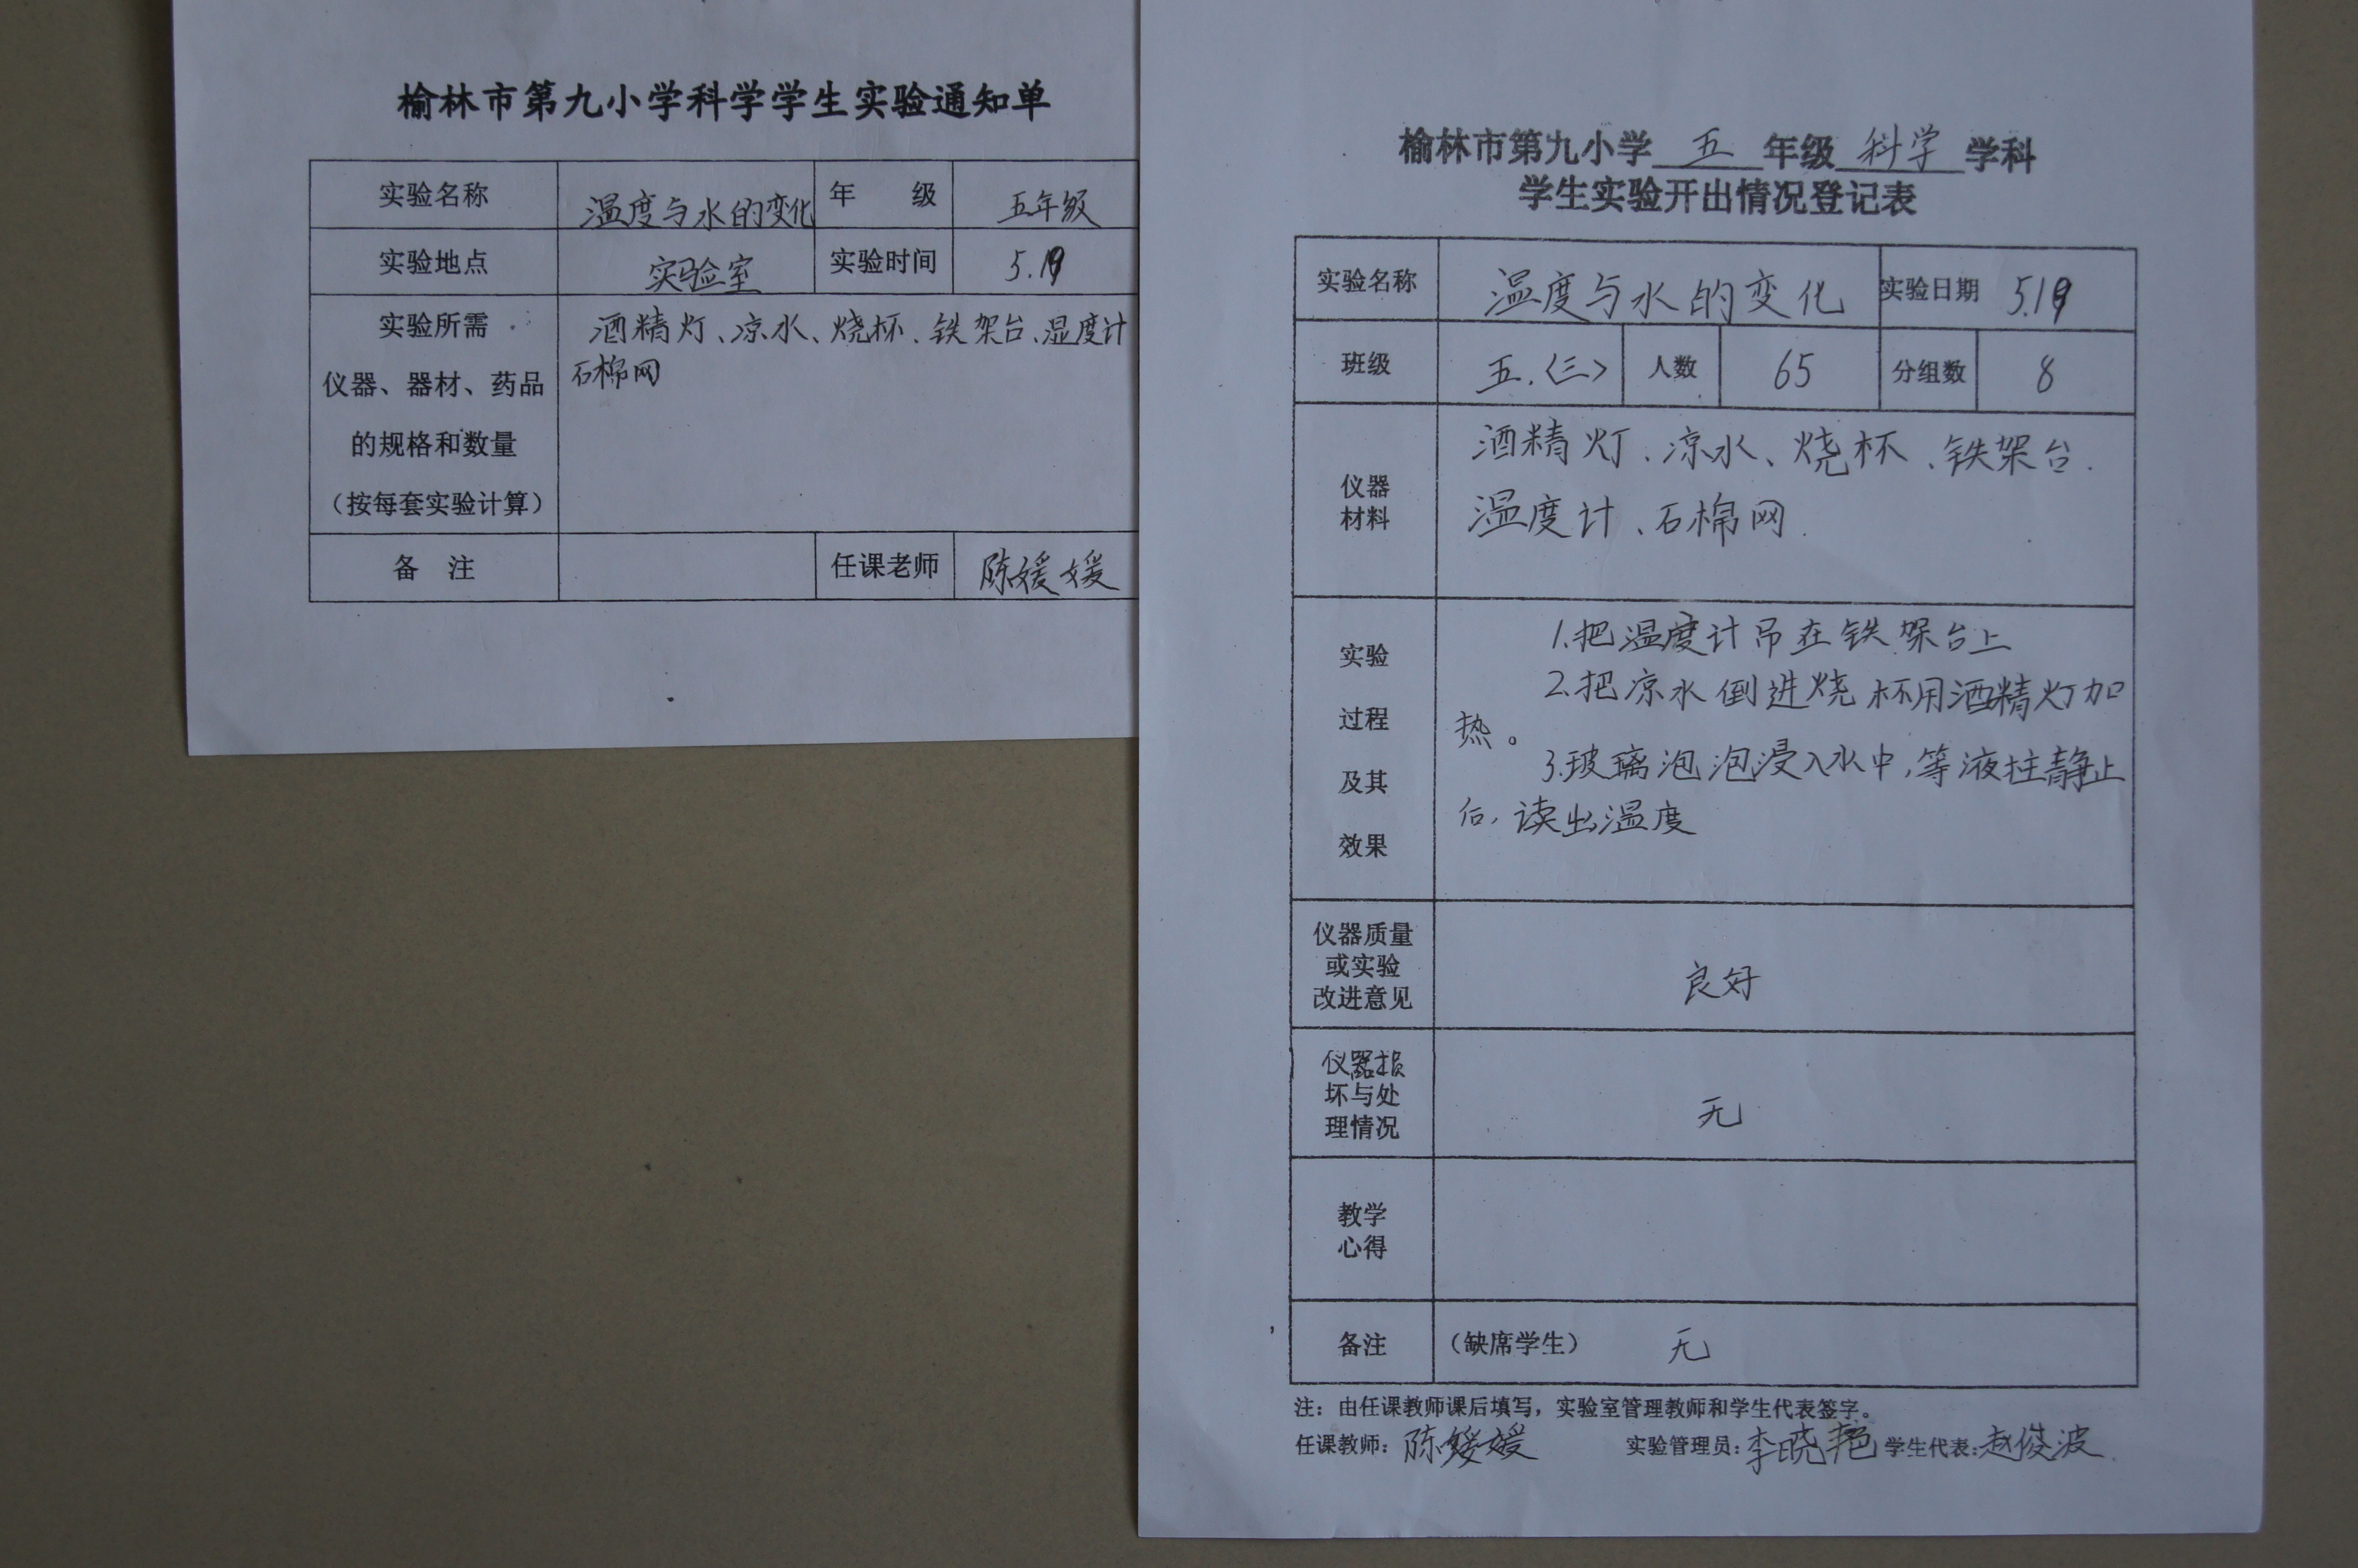 榆林市第九小学科学学生实验通知单
实验名称 温度与水的变化 年 级 五年级
实验地点 实验室 实验时间 5.19
实验所需
仪器、器材、药品
的规格和数量
（按每套实验计算）
酒精灯、凉水、烧杯、铁架台、湿度计
石棉网
备 注 任课老师 陈媛媛
榆林市第九小学 五 年级 科学 学科
学生实验开出情况登记表
实验名称 温度与水的变化 实验日期 5.19
班级 五.〈三〉 人数 65 分组数 8
仪器
材料
酒精灯、凉水、烧杯、铁架台.
温度计、石棉网
实验
过程
及其
效果
1.把温度计吊在铁架台上
2.把凉水倒进烧杯用酒精灯加
热。
3.玻璃泡泡浸入水中,等液柱静止
后,读出温度
仪器质量
或实验
改进意见
良好
仪器损
坏与处
理情况
无
教学
心得
备注 （缺席学生） 无
注：由任课教师课后填写，实验室管理教师和学生代表签字。
任课教师：陈媛媛 实验管理员：李晓艳 学生代表：赵俊波